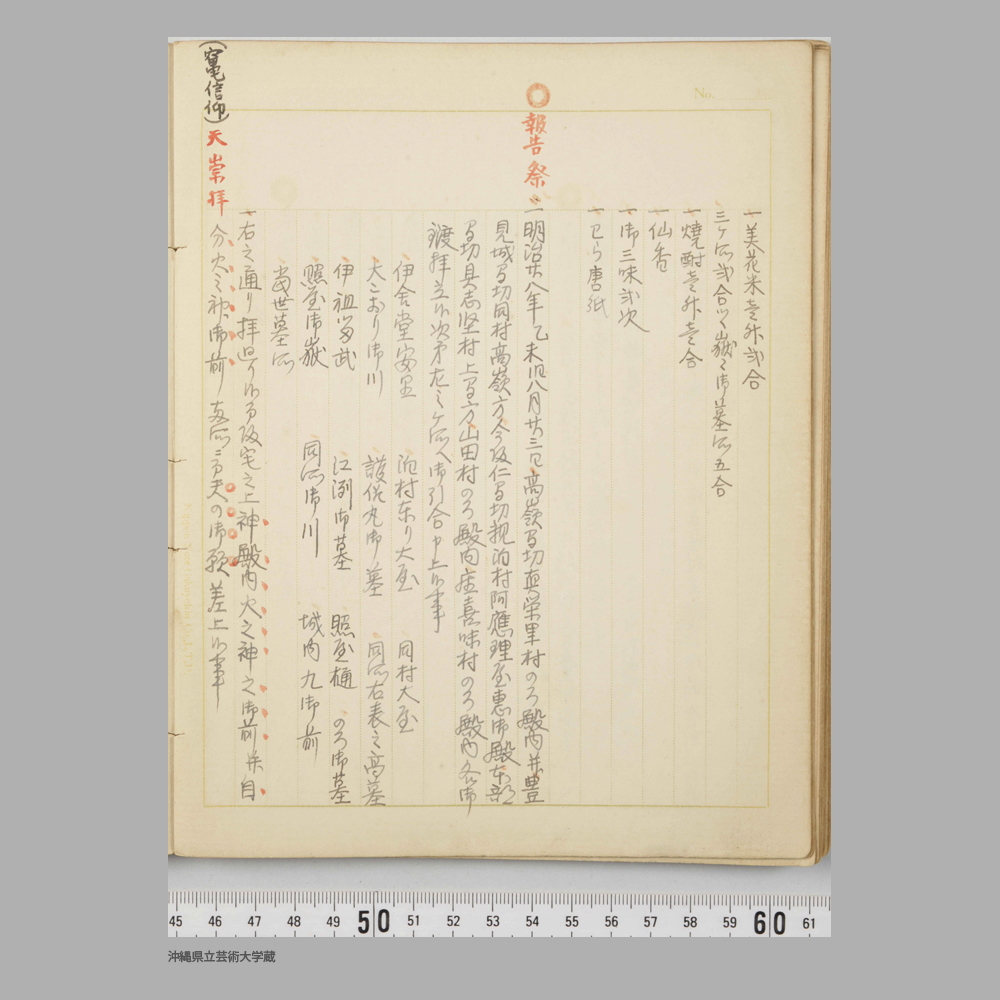 No.
一美花米壱升弐合
三ヶ所弐合ツヽ嶽々御墓所五合
一焼酎壱升壱合
一仙香
一御三味弐次
一巳ら唐紙
報告祭
一明治廿八年乙未旧八月廿三日高嶺間切真栄里村のろ殿内并豊
見城間切同村高嶺方今帰仁間切親泊村阿應理屋惠御殿本部
間切具志堅村上間方山田村のろ殿内座喜味村のろ殿内各御
鍍拝立候次第左之ヶ所へ御引合申上候事
伊舎堂安里 泊村本り大屋 同村大屋
大こおり御川 護佐丸御墓 同所右表之高墓
伊祖御武 江洌御墓 照屋樋 のろ御墓
照屋御嶽 同所御川 城内九御前
当世墓所
(竃信仰)
天崇拝
一右之通り拝過候而帰宅之上神殿内火之神之御前并自
分火之神御前両所ニ而天の御願差上候事
45 46 47 48 49 50 51 52 53 54 55 56 57 58 59 60 61
沖縄県立芸術大学蔵